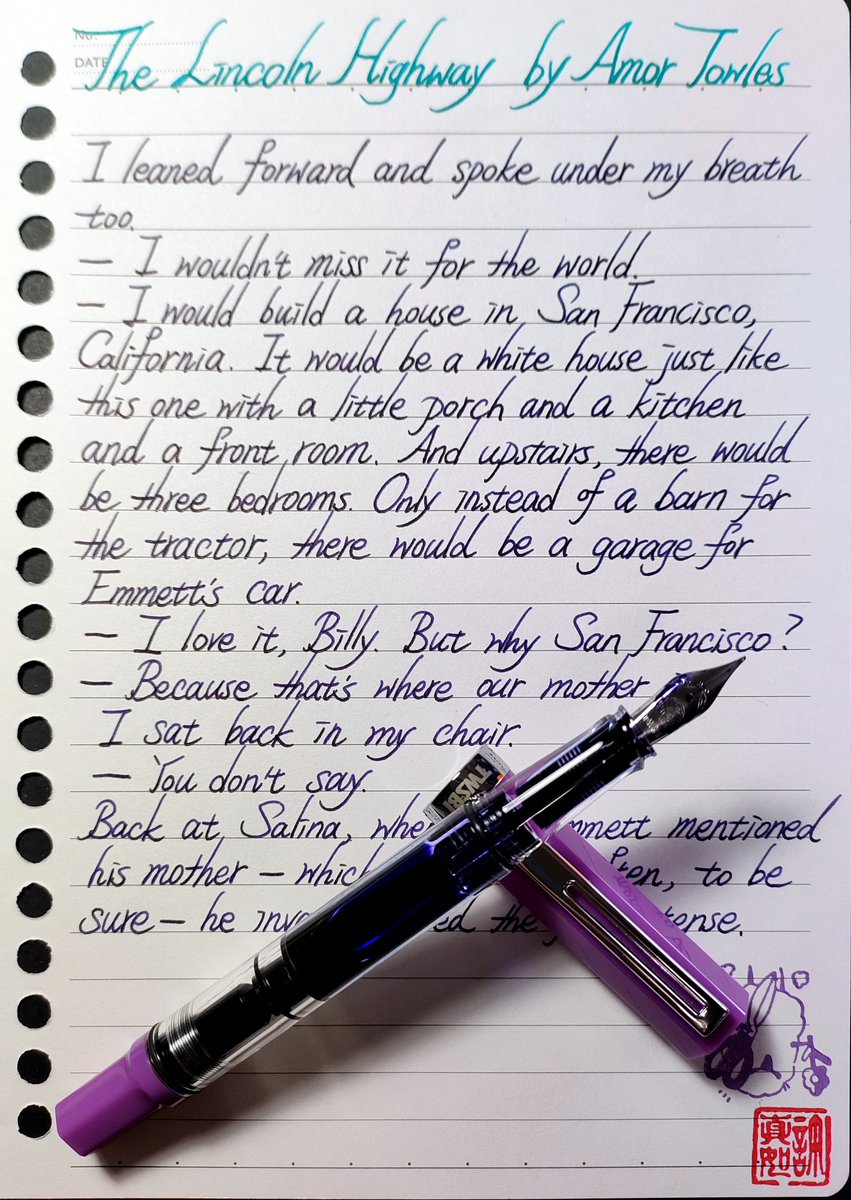 No.
DATE
The Lincoln Highway by Amor Towles
I leaned forward and spoke under my breath
too.
– I wouldn't miss it for the world.
– I would build a house in San Francisco,
California. It would be a white house just like
this one with a little porch and a kitchen
and a front room. And upstairs, there would
be three bedrooms. Only instead of a barn for
the tractor, there would be a garage for
Emmett's car.
– I love it, Billy. But why San Francisco?
– Because that's where our mother
I sat back in my chair.
– You don't say.
Back at Salina, mentioned
his mother – to be
sure – he the tense.
TWSBI
真如